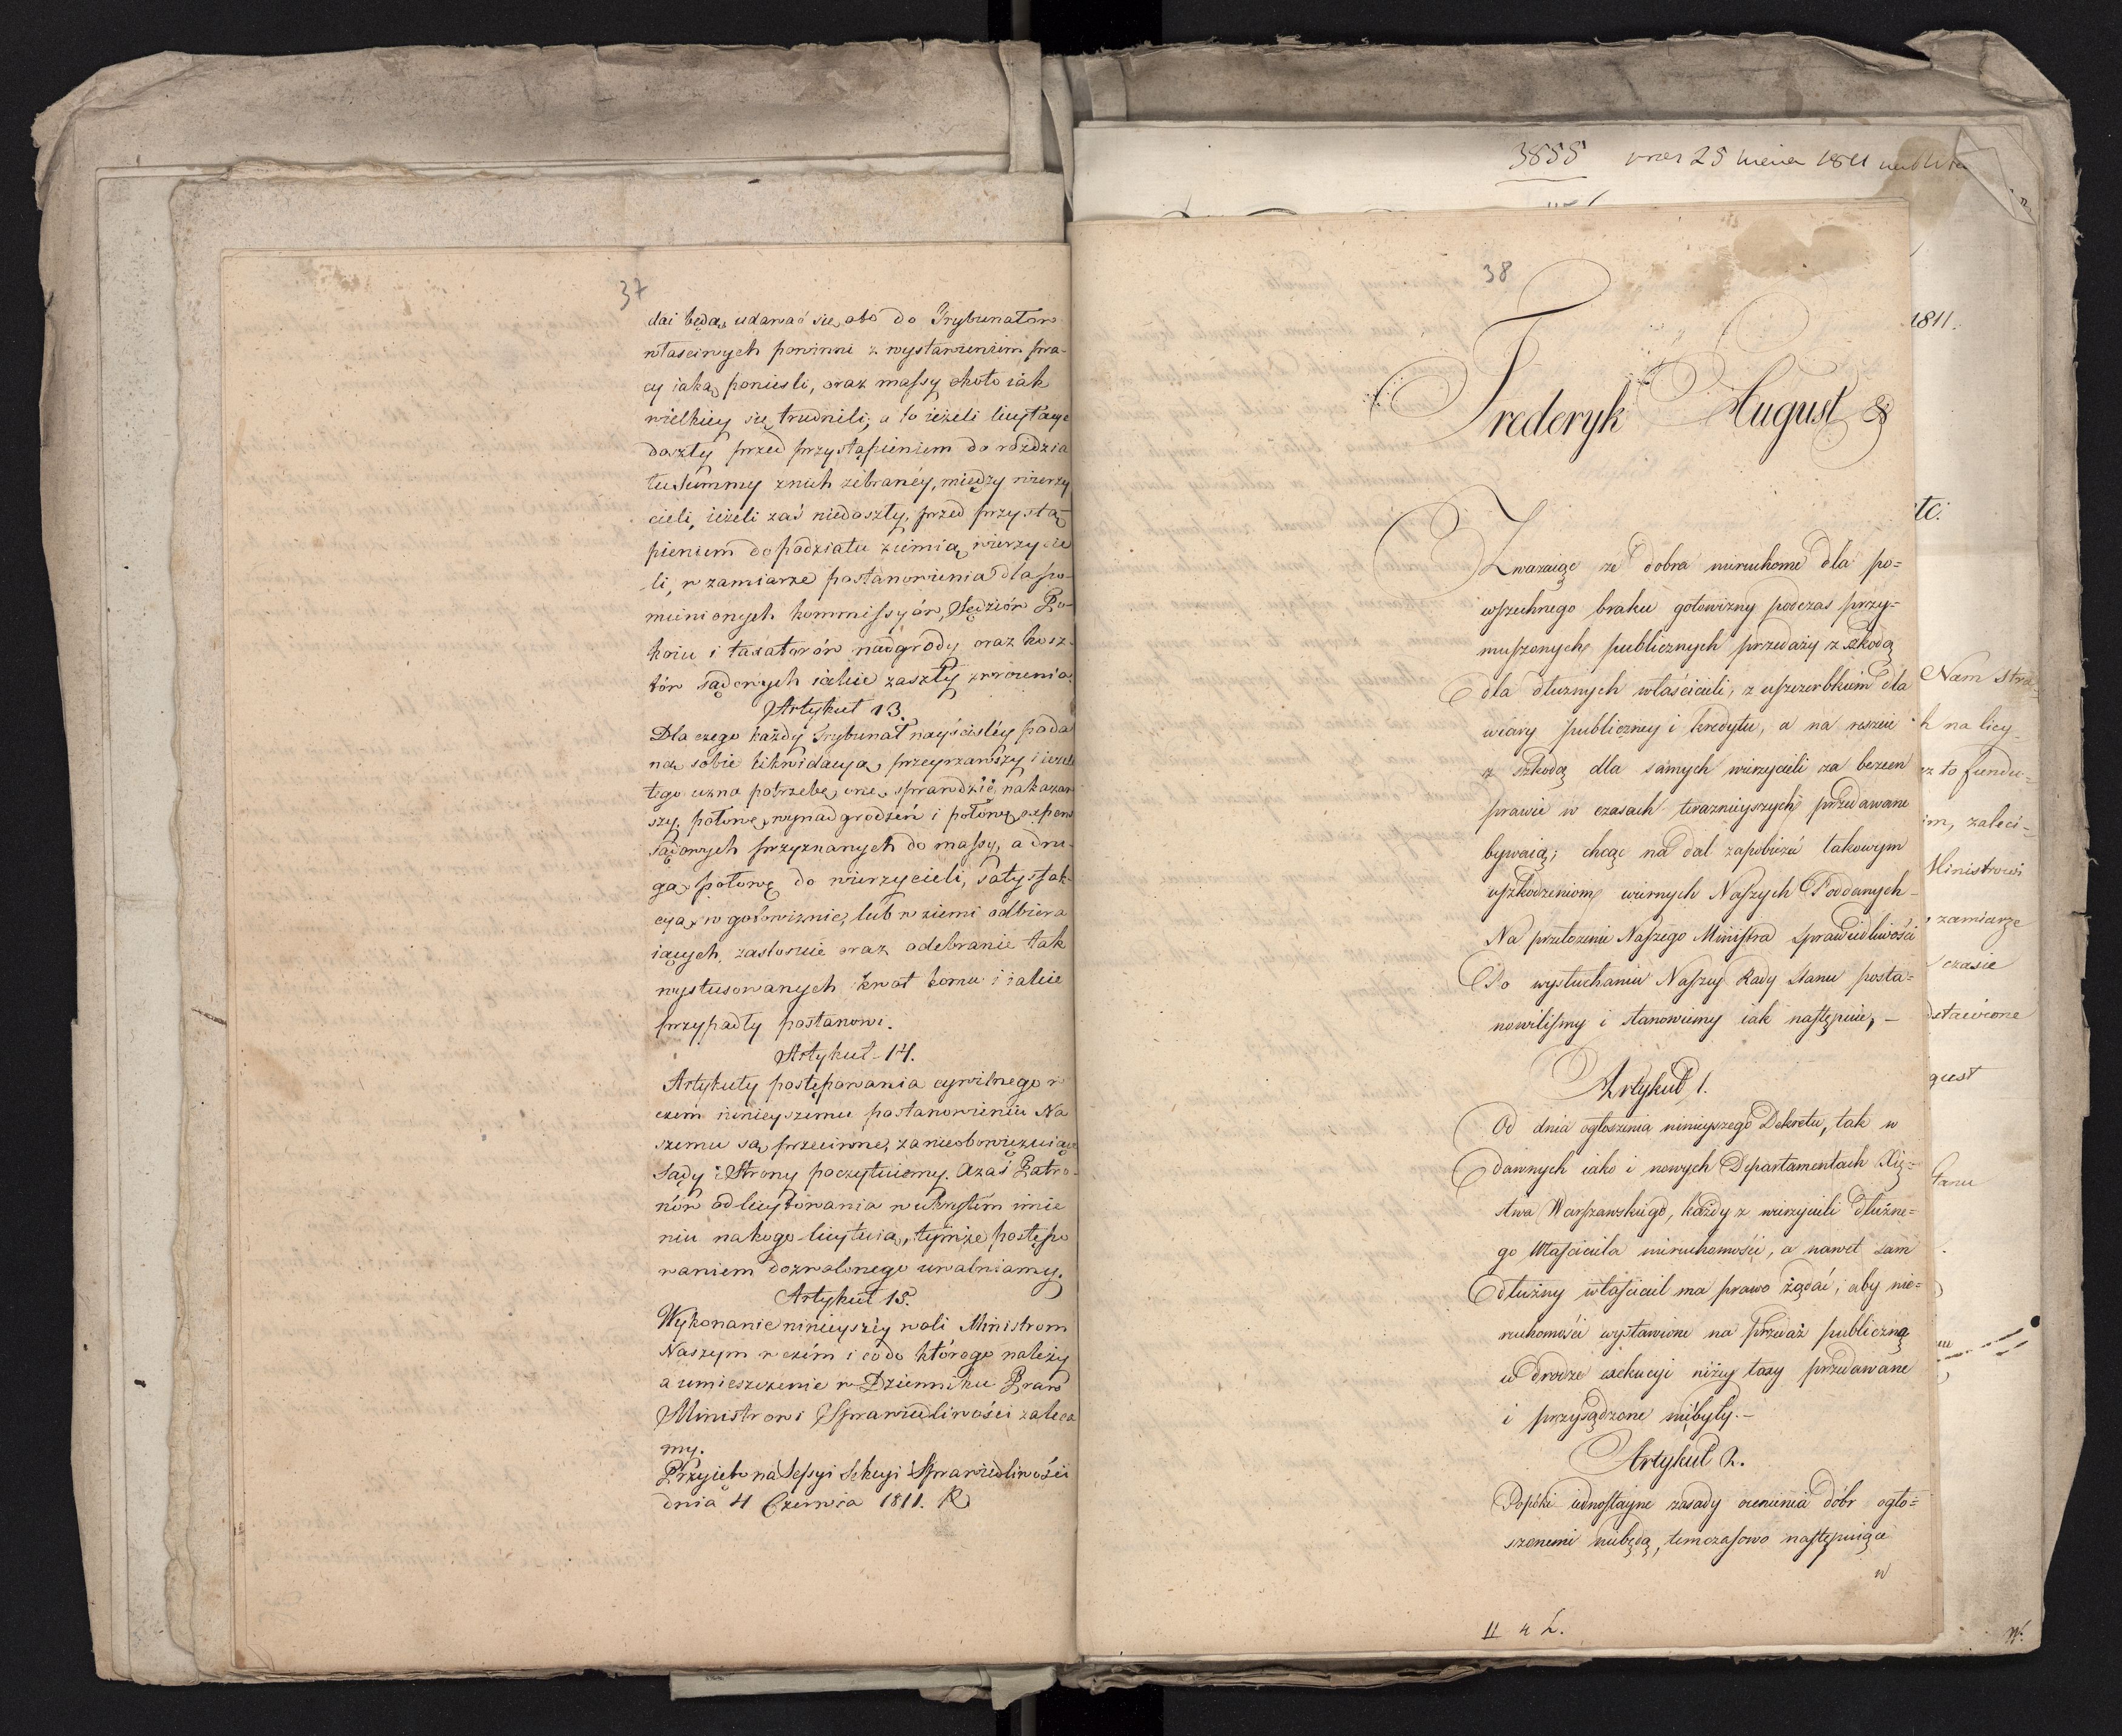 37
dai będą, udawać się, abó do Trybunałow
właściwych powinni z wystawieniem pra-
cy iaką ponieśli, oraz massy około iak
wielkiey się trudnili; a to ieżeli licytacye
doszły przed przystąpieniem do rozdzia
łu Summy z nich zebranéy, między wierzy
cieli, ieżeli zaś niedoszły, przed przystą-
pieniem do podziału ziemią wierzycie
li, w zamiarze postanowienia dla po-
mienionych kommissyów, Sędziów Po-
koiu i taxatorów nadgrody oraz kosz-
tów sądowych iakie zaszły zwrócenia.
Artykuł 13.
Dla czego każdy Trybunał nayściśléy poda
ną sobie likwidacyą przeyrzawszy i ieżeli
tego uzna potrzebę, onę sprawdzić nakazaw
szy, połowę wynadgrodzeń i połowę expens
sądowych przyznanych do massy, a dru-
gą połowę do wierzycieli, satysfak-
cyą w gotowiznie, lub w ziemi odbiera
iących, zastosuie oraz odebranie tak
wystusowanych kwot komu i iakie
przypadły postanowi.
Artykuł 14.
Artykuły postępowania cywilnego w
czem ninieyszemu postanowieniu Na
szemu są przeciwne, za nieobowięzuiące
Sądy i Strony poczytuiemy. Azaś Patro-
nów od licytowania w własném imie
niu na kogo licytuią, tymże postępo
waniem dozwolonego uwalniamy.
Artykuł 15.
Wykonanie ninieyszéy woli Ministrom
Naszym w czém i co do którego należy
a umieszczenie w Dzienniku Praw
Ministrowi Sprawiedliwości zaleca
my.
Przyięto na Sessyi Sekcyi Sprawiedliwości
dnia 4 Czerwca 1811. R
3855
25 1811
38
Frederyk August &
Zważaiąc że dobra nieruchome dla po=
wszechnego braku gotowizny podczas przy=
muszonych publicznych przedaży z szkodą
dla dłużnych właścicieli, z uszczerbkiem dla
wiary publiczney i kredytu, a na reszcie
z szkodą dla samych wierzycieli za bezcen
prawie w czasach teraznieyszych przedawane
bywaią; chcąc na dal zapobiedz takowym
uszkodzeniom wiernych Naszych Poddanych-
Na przełożenie Naszego Ministra Sprawiedliwości
Po wysłuchaniu Naszey Rady Stanu posta=
nowiliśmy i stanowiemy iak następuie, -
Artykuł 1.
Od dnia ogłoszenia ninieyszego Dekretu, tak w
dawnych iako i nowych Departamentach Xię=
stwa Warszawskiego, każdy z wierzycieli dłużne=
go Właściciela nieruchomości, a nawet sam
dłużny właściciel ma prawo żądać, aby nie=
ruchomości wystawione na przedaż publiczną
w drodze exekucyi niżey taxy przedawane
i przysądzone niebyły.-
Artykuł 2.
Dopóki iednostayne zasady ocenienia dóbr ogło=
szonemi niebędą, tymczasowo następuiące
w
1811.
etc.
Nam stra-
h na licy-
z to fundu=
im, zaleci-
Ministrowi
zamiarze
czasie
dstawione
gust
Stanu
W.